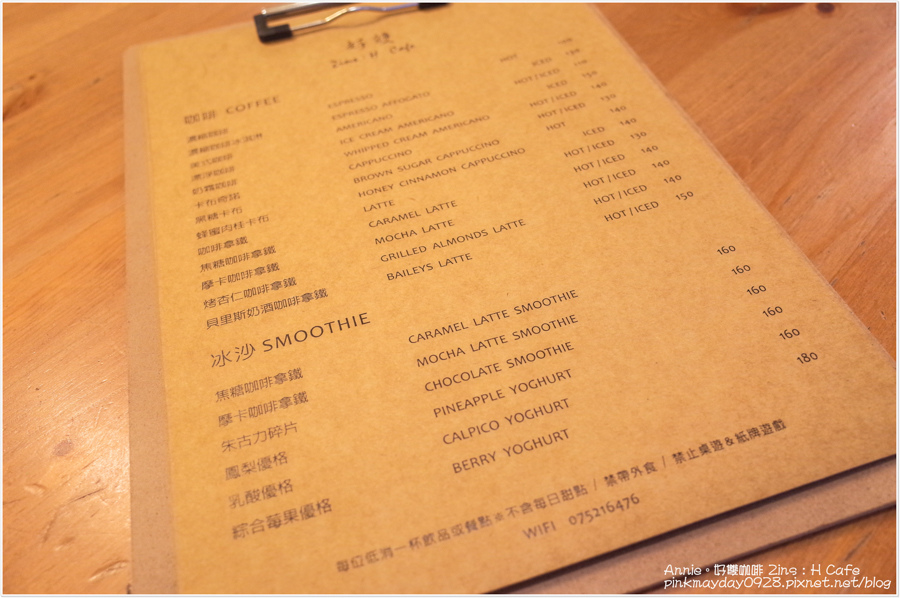 Zins : H Cafe
咖啡 COFFEE
濃縮咖啡 ESPRESSO HOT
濃縮咖啡冰淇淋 ESPRESSO AFFOGATO ICED
美式咖啡 AMERICANO HOT / ICED
漂浮咖啡 ICE CREAM AMERICANO ICED
奶霜咖啡 WHIPPED CREAM AMERICANO HOT / ICED
卡布奇諾 CAPPUCCINO HOT / ICED
黑糖卡布 BROWN SUGAR CAPPUCCINO
蜂蜜肉桂卡布 HONEY CINNAMON CAPPUCCINO HOT
咖啡拿鐵 LATTE
焦糖咖啡拿鐵 CARAMEL LATTE HOT / ICED
摩卡咖啡拿鐵 MOCHA LATTE HOT / ICED 140
烤杏仁咖啡拿鐵 GRILLED ALMONDS LATTE HOT / ICED 140
貝里斯奶酒咖啡拿鐵 BAILEYS LATTE HOT / ICED 150
冰沙 SMOOTHIE
焦糖咖啡拿鐵 CARAMEL LATTE SMOOTHIE 160
摩卡咖啡拿鐵 MOCHA LATTE SMOOTHIE 160
朱古力碎片 CHOCOLATE SMOOTHIE 160
鳳梨優格 PINEAPPLE YOGHURT 160
乳酸優格 CALPICO YOGHURT 160
綜合莓果優格 BERRY YOGHURT 180
每位低消一杯飲品或餐點※不含每日甜點 / 禁帶外食 / 禁止桌遊&紙牌遊戲
WIFI 075216476
Annie。好樣咖啡 Zins : H Cafe
pinkmayday0928.pixnet.net/blog